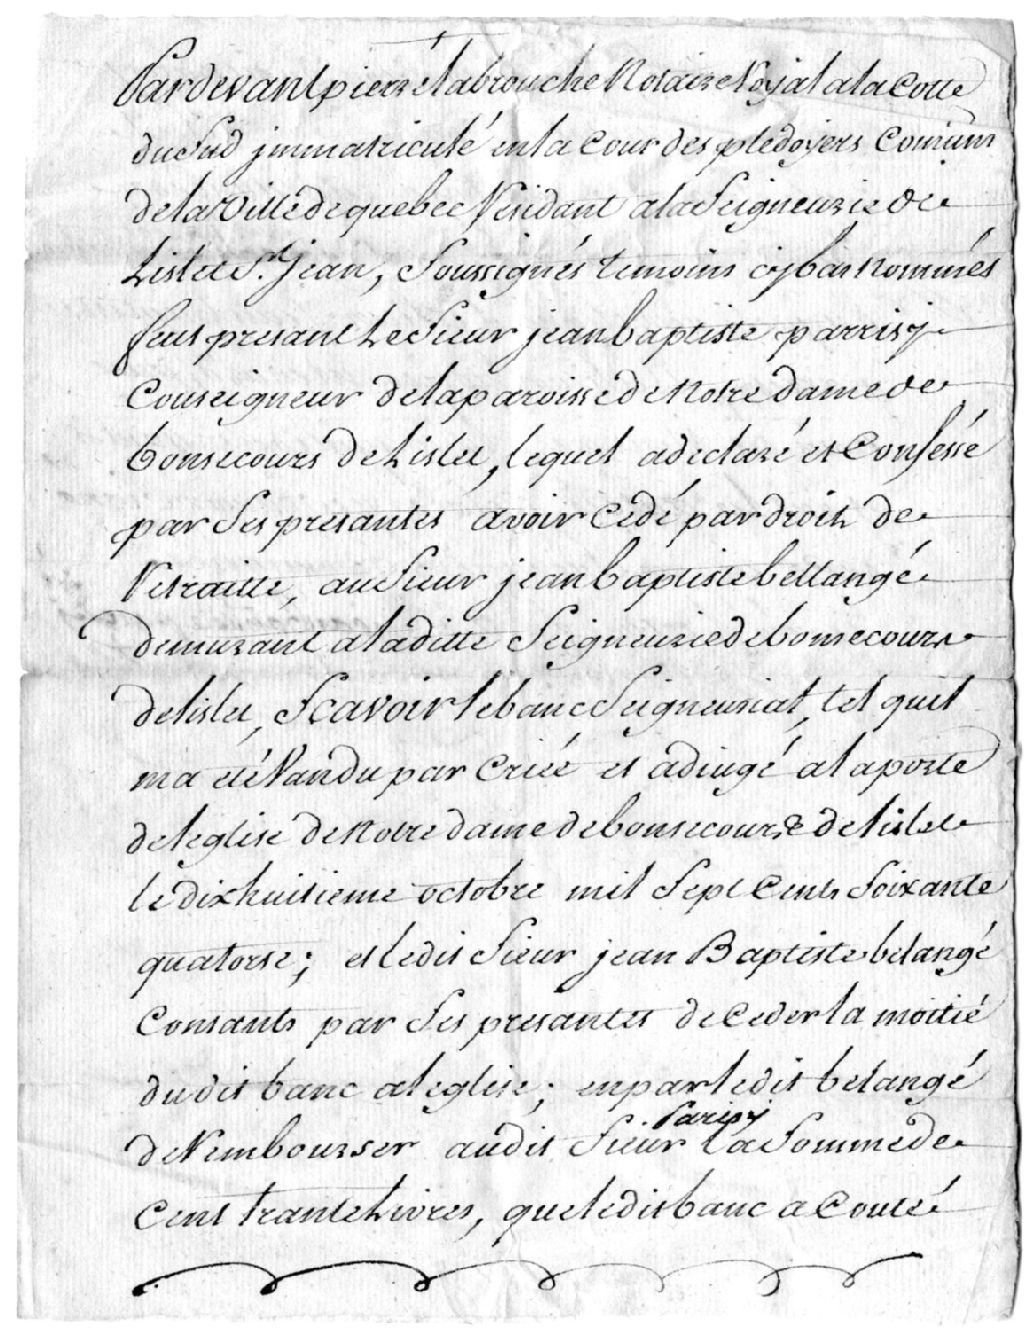 Pardevant pierre labrouche Notaire Royal a la Cotte
du Sud jmmatriculé en la Cour des pledoyers Comium
de la Ville de quebec Residant a la Seigneurie de
Lislet St. Jean, Soussignés temoins cy bas Nommés
feut presant Le Sieur jean baptiste parrisy
Couseigneur de la paroisse de Notre dame de
bonsecours de Lislet, lequel a declaré et Confessé
par Ses presantes avoir Cedé par droit de
Retraitte, au Sieur jean baptiste bellangé
demurant a la ditte Seigneurie de bonsecours
de lislet, Scavoir le banc Seigneurial, tel quel
ma eté Vandu par Criée et adiugé a la porte
de leglise de Notre dame de bonsecours de lislet
le dixhuitieme octobre mil Sept Cents Soixante
quatorse; et ledit Sieur jean Baptiste belangé
Consants par Ses presantes de Ceder la moitié
dudit banc a leglise; en par ledit belangé
de Rembourser audit Sieur Parisy la Somme de
Cent trante Livres, que ledit banc a Couté